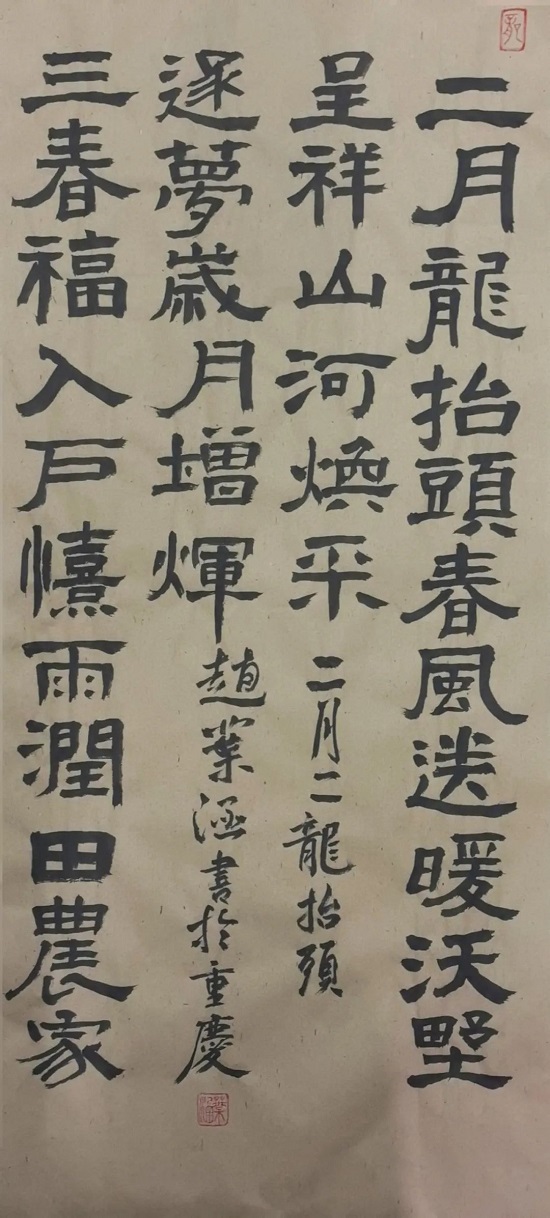 二月龍抬頭春風送暖沃野
呈祥山河煥采
二月二龍抬頭
三春福入戶憘雨潤田農家
逐夢歲月增煇
趙業涵書於重慶